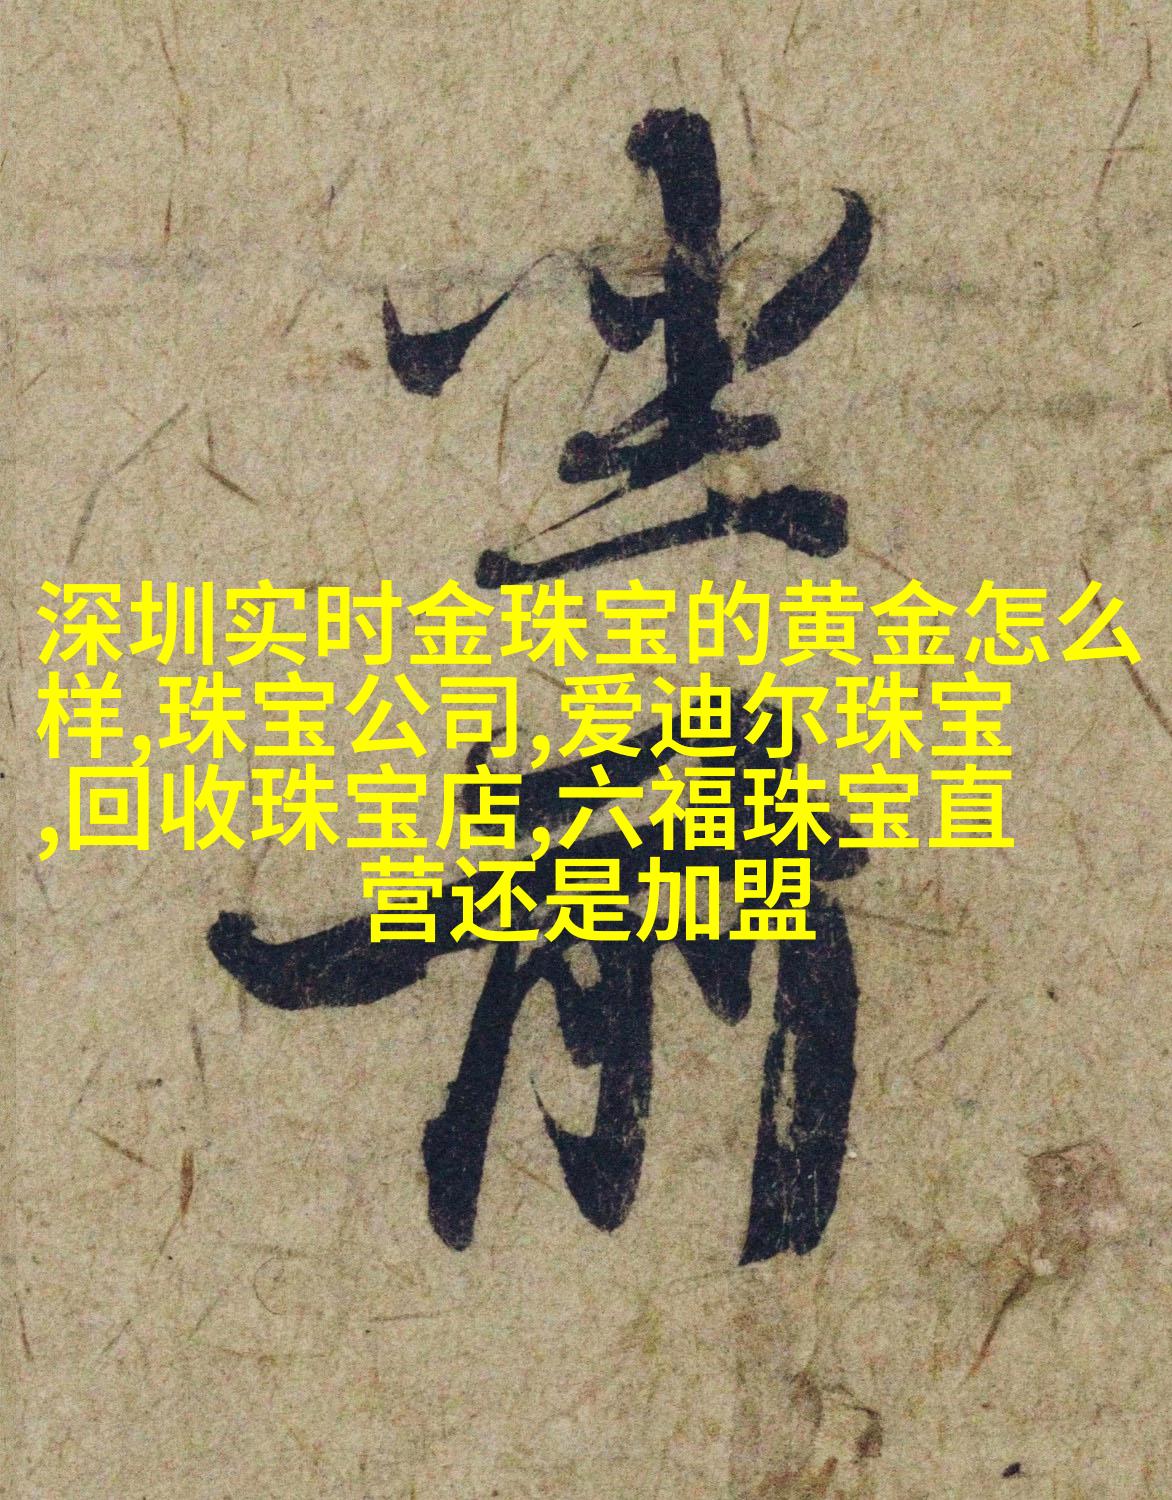 深圳实时金珠宝的黄金怎么
样,珠宝公司,爱迪尔珠宝
,回收珠宝店,六福珠宝直
营还是加盟